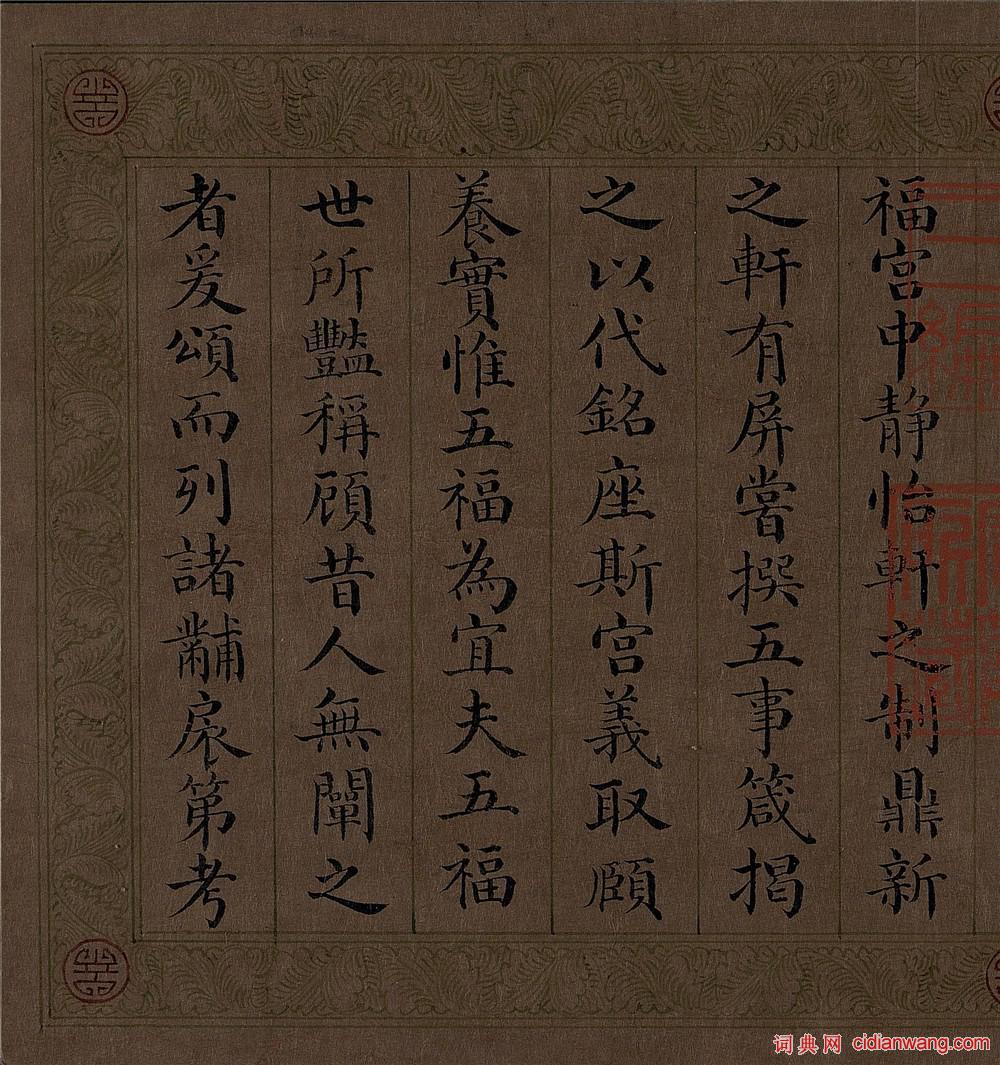 福宫中静怡軒之制鼎新
之軒有屏嘗撰五事箴揭
之以代銘座斯宫義取頤
養實惟五福為宜夫五福
世所豔稱顧昔人無闡之
者爰頌而列諸黼扆第考
词典网 cidianwang.com